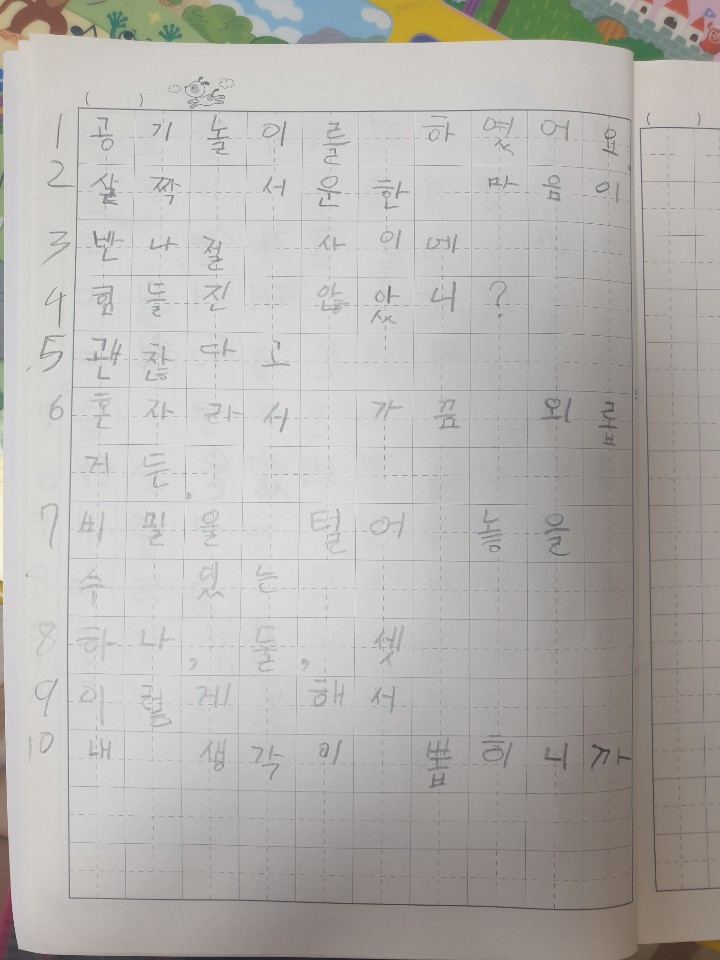 ( )
( )
1 공기놀이를 하였어요.
2 살짝 서운한 마음이
3 반나절 사이에
4 힘들진 않았니?
5 괜찮다고
6 혼자라서 가끔 외롭
거든.
7 비밀을 털어 놓을
수 있는
8 하나, 둘, 셋
9 이렇게 해서
10 내 생각이 뽑히니까